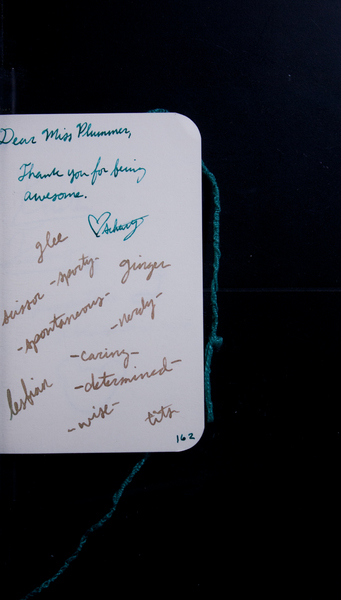 Dear Miss Plummer,
Thank you for being
awesome.
glee
-sporty- ginger
scissor
-spontaneous- -nerdy-
-caring-
lesbian -determined-
-wise- tits
162